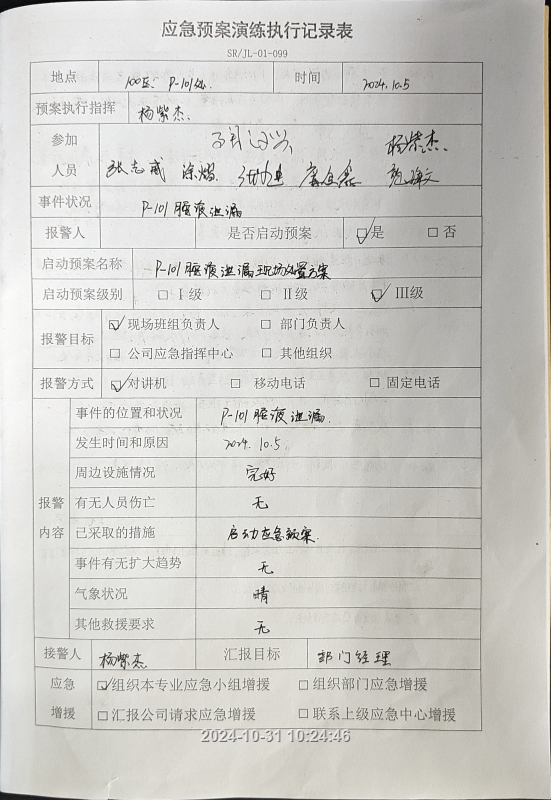 应急预案演练执行记录表
SR/JL-01-099
地点 100区 P-101处 时间 2024.10.5
预案执行指挥 杨紫杰
参加 杨紫杰
人员 张志威 涂熠
事件状况 P-101胺液泄漏
报警人 是否启动预案 ☑是 □否
启动预案名称 P-101胺液泄漏现场处置方案
启动预案级别 □Ⅰ级 □Ⅱ级 ☑Ⅲ级
报警目标 ☑现场班组负责人 □部门负责人
□公司应急指挥中心 □其他组织
报警方式 ☑对讲机 □移动电话 □固定电话
报警内容
事件的位置和状况 P-101胺液泄漏.
发生时间和原因 2024.10.5.
周边设施情况 完好
有无人员伤亡 无
已采取的措施 启动应急预案.
事件有无扩大趋势 无
气象状况 晴
其他救援要求 无
接警人 杨紫杰 汇报目标 部门经理
应急 ☑组织本专业应急小组增援 □组织部门应急增援
增援 □汇报公司请求应急增援 □联系上级应急中心增援
2024-10-31 10:24:46